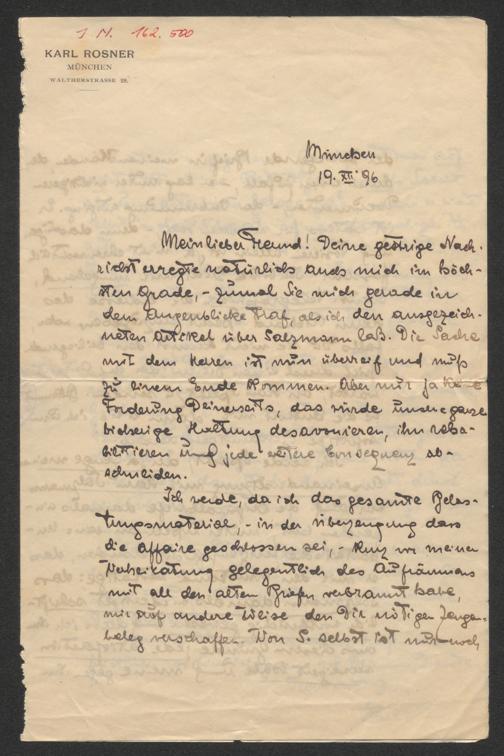 I N. 162.500
KARL ROSNER
MÜNCHEN
WALTHERSTRASSE 28.
München
19. XII '96
Mein lieber Freund! Deine gestrige Nach-
richt erregte natürlich auch mich im höch-
sten Grade, - zumal Sie mich gerade in
dem Augenblicke traf, als ich den ausgezeich-
neten Artikel über Salzmann las. Die Sache
mit dem Herren ist nun überreif und muß
zu einem Ende kommen. Aber nur ja keine
Forderung Deinerseits, das würde unsere ganze
bisherige Haltung desavouieren, ihn reha-
bilitieren und jede weitere Consequenz ab-
schneiden.
Ich werde, da ich das gesamte Belas-
tungsmaterial, - in der Überzeugung dass
die Affaire geschlossen sei, - kurz vor meiner
Verheiratung gelegentlich des Aufräumens
mit all den alten Briefen verbrannt habe,
mir auf andere Weise den Dir nötigen Zeugen-
beleg verschaffen. Von S. selbst ist nur noch